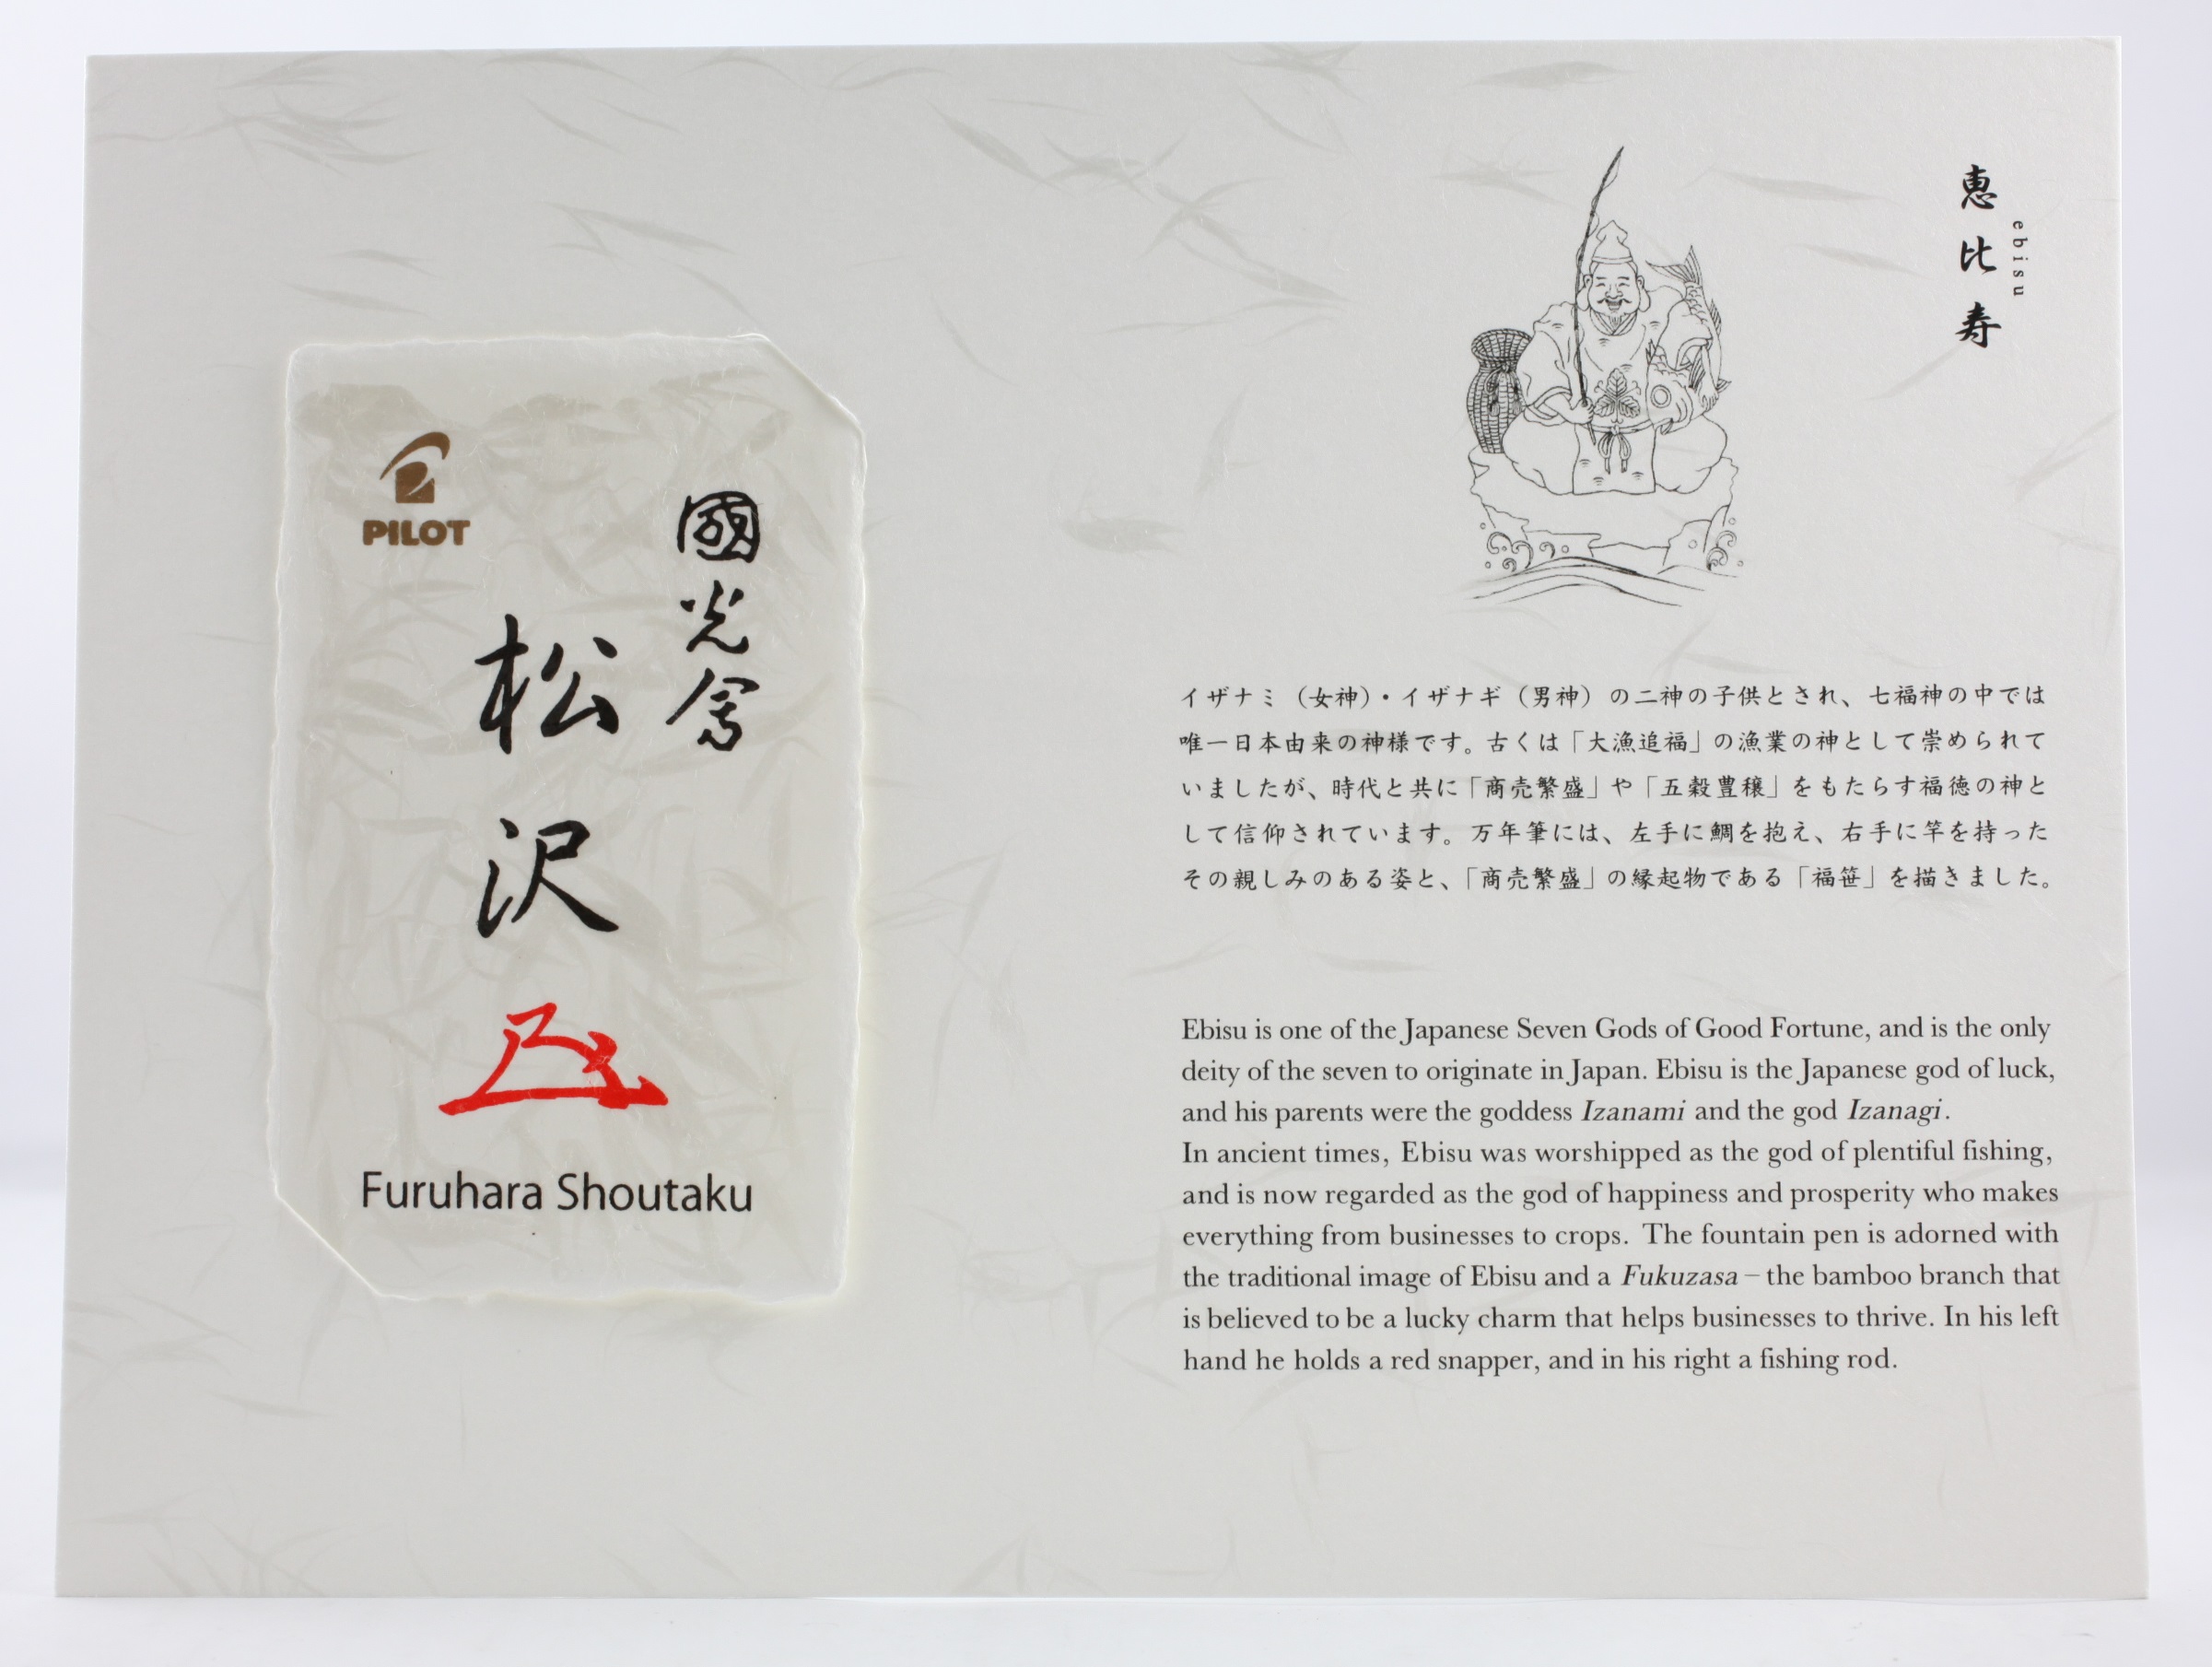 PILOT
國光會
松沢
Furuhara Shoutaku
恵比寿
ebisu
イザナミ（女神）・イザナギ（男神）の二神の子供とされ、七福神の中では
唯一日本由来の神様です。古くは「大漁追福」の漁業の神として崇められて
いましたが、時代と共に「商売繁盛」や「五穀豊穣」をもたらす福徳の神と
して信仰されています。万年筆には、左手に鯛を抱え、右手に竿を持った
その親しみのある姿と、「商売繁盛」の縁起物である「福笹」を描きました。
Ebisu is one of the Japanese Seven Gods of Good Fortune, and is the only
deity of the seven to originate in Japan. Ebisu is the Japanese god of luck,
and his parents were the goddess Izanami and the god Izanagi.
In ancient times, Ebisu was worshipped as the god of plentiful fishing,
and is now regarded as the god of happiness and prosperity who makes
everything from businesses to crops. The fountain pen is adorned with
the traditional image of Ebisu and a Fukuzasa – the bamboo branch that
is believed to be a lucky charm that helps businesses to thrive. In his left
hand he holds a red snapper, and in his right a fishing rod.